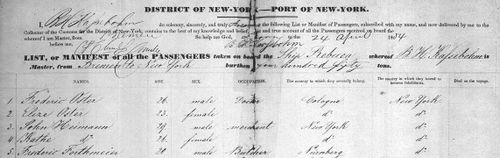 DISTRICT OF NEW-YORK—PORT OF NEW-YORK.
I, do solemnly, sincerely, and truly that the following List or Manifest of all the Passengers, subscribed with my name, and now delivered by me to the
Collector of the Customs for the District of New-York, contains, to the best of my knowledge and belief, a just and true account of all the Passengers received on board the
whereof I am Master, from Bremen So help me God.
before me, 24 April 1834
LIST, or MANIFEST of all the PASSENGERS taken on board the Ship Rebecca whereof B. H.
Master, from Bremen to New York burthen four hundred fifty tons.
NAMES. AGE. SEX. OCCUPATION. The country to which they severally belong. The country in which they intend to become inhabitants. Died on the voyage.
1 Frederic Oster 26. male Cologne New York
2 Eliza Oster 23. female d° d°
3 John Heimann 29. male merchant New York d°
4 Kathe d° 26. female d° d°
5 Frederic Forthmeier 30. male Butcher Nurnberg d°